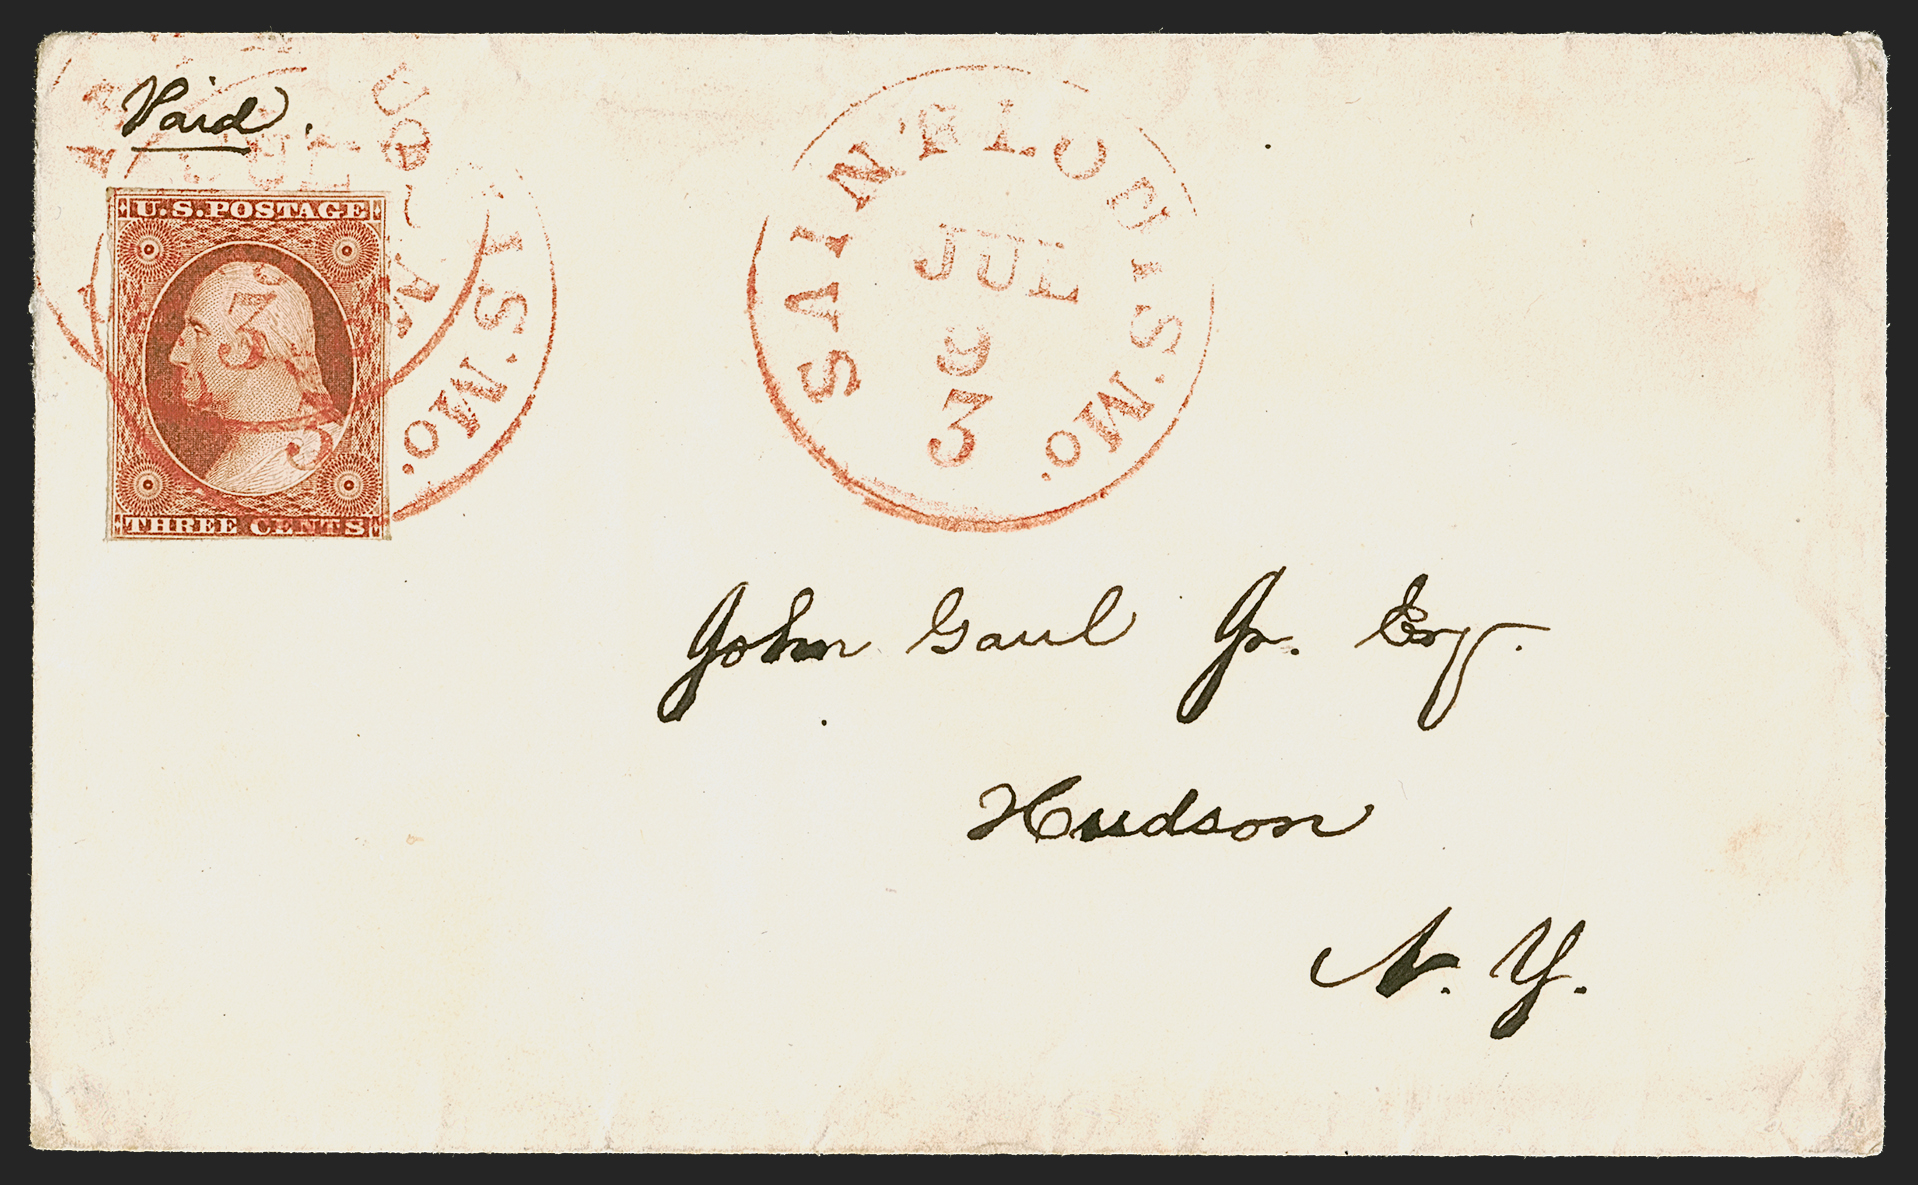 Paid.
U.S. POSTAGE
THREE CENTS
SAINT LOUIS. Mo.
JUL
9
3
IS. Mo.
3
John Gaul Jr. Esq.
Hudson
N. Y.